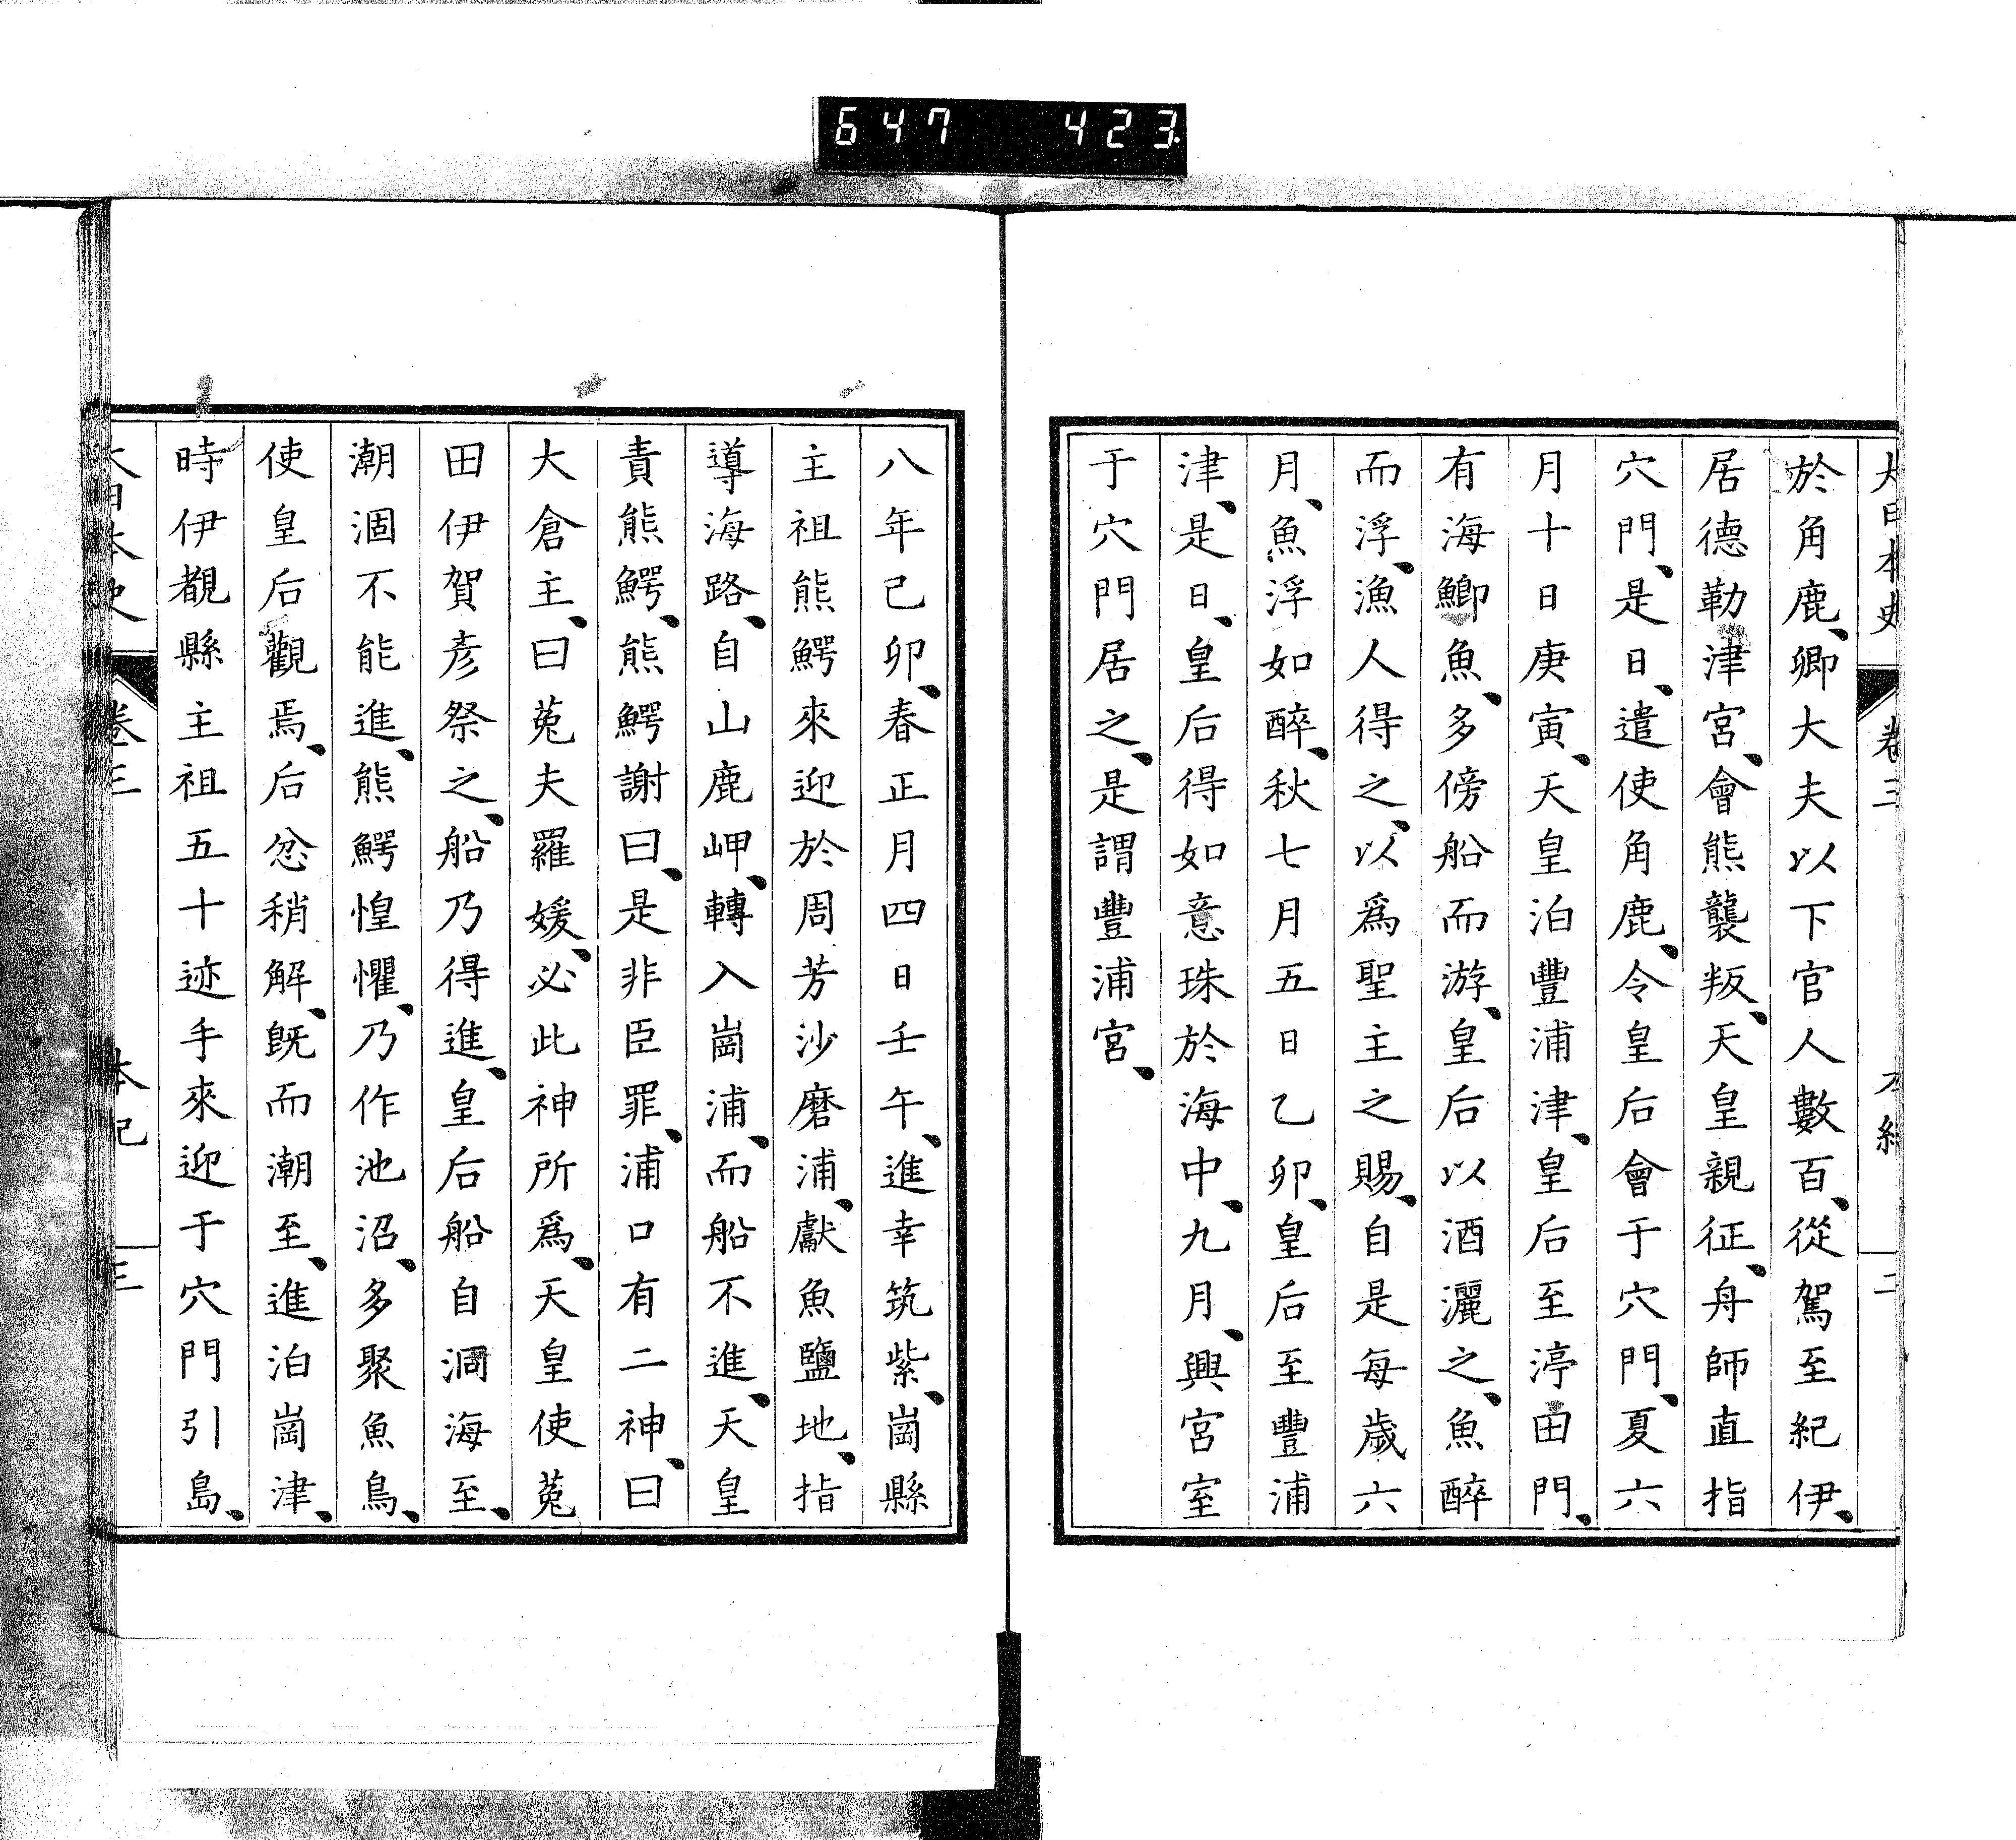 647 423
大日本史 卷三 本紀 二
於角鹿、卿大夫以下官人數百、從駕至紀伊、
居德勒津宮、會熊襲叛、天皇親征、舟師直指
穴門、是日、遣使角鹿、令皇后會于穴門、夏六
月十日庚寅、天皇泊豐浦津、皇后至渟田門、
有海鯽魚、多傍船而游、皇后以酒灑之、魚醉
而浮、漁人得之、以爲聖主之賜、自是每歲六
月、魚浮如醉、秋七月五日乙卯、皇后至豐浦
津、是日、皇后得如意珠於海中、九月、興宮室
于穴門居之、是謂豐浦宮、
八年己卯、春正月四日壬午、進幸筑紫、崗縣
主祖熊鰐來迎於周芳沙磨浦、獻魚鹽地、指
導海路、自山鹿岬、轉入崗浦、而船不進、天皇
責熊鰐、熊鰐謝曰、是非臣罪、浦口有二神、曰
大倉主、曰菟夫羅媛、必此神所爲、天皇使菟
田伊賀彥祭之、船乃得進、皇后船自洞海至、
潮涸不能進、熊鰐惶懼、乃作池沼、多聚魚鳥、
使皇后觀焉、后忿稍解、旣而潮至、進泊崗津、
時伊覩縣主祖五十迹手來迎于穴門引島、
大日本史 卷三 本紀 三